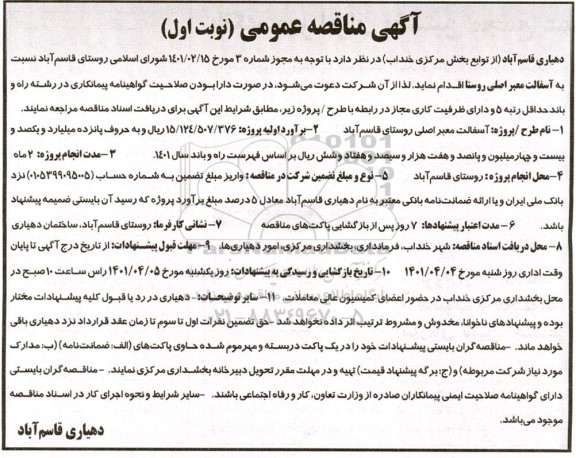 آگهی مناقصه عمومی (نوبت اول)
دهیاری قاسم‌آباد (از توابع بخش مرکزی خنداب) در نظر دارد با توجه به مجوز شماره ۳ مورخ ۱۴۰۱/۰۲/۱۵ شورای اسلامی روستای قاسم‌آباد نسبت
به آسفالت معبر اصلی روستا اقدام نماید. لذا از آن شرکت دعوت می‌شود، در صورت دارا بودن صلاحیت گواهینامه پیمانکاری در رشته راه و
باند حداقل رتبه ۵ و دارای ظرفیت کاری مجاز در رابطه با طرح / پروژه زیر، مطابق شرایط این آگهی برای دریافت اسناد مناقصه مراجعه نمایند.
۱- نام طرح / پروژه: آسفالت معبر اصلی روستای قاسم‌آباد ۲- برآورد اولیه پروژه: ۱۵/۱۲۴/۵۰۷/۳۷۶ ریال و به حروف پانزده میلیارد و یکصد و
بیست و چهار میلیون و پانصد و هفت هزار و سیصد و هفتاد و شش ریال بر اساس فهرست راه و باند سال ۱۴۰۱. ۳- مدت انجام پروژه: ۲ ماه
۴- محل انجام پروژه: روستای قاسم‌آباد ۵- نوع و مبلغ تضمین شرکت در مناقصه: واریز مبلغ تضمین به شماره حساب (۰۱۰۵۳۹۹۰۹۵۰۰۵) نزد
بانک ملی ایران و یا ارائه ضمانت‌نامه بانکی معتبر به نام دهیاری قاسم‌آباد معادل ۵ درصد مبلغ برآورد پروژه که رسید آن بایستی ضمیمه پیشنهاد
باشد. ۶- مدت اعتبار پیشنهادها: ۷ روز پس از بازگشایی پاکت‌های مناقصه ۷- نشانی کارفرما: روستای قاسم‌آباد، ساختمان دهیاری
۸- محل دریافت اسناد مناقصه: شهر خنداب، فرمانداری، بخشداری مرکزی، امور دهیاری‌ها. ۹- مهلت قبول پیشنهادات: از تاریخ درج آگهی تا پایان
وقت اداری روز شنبه مورخ ۱۴۰۱/۰۴/۰۴ ۱۰- تاریخ بازگشایی و رسیدگی به پیشنهادات: روز یکشنبه مورخ ۱۴۰۱/۰۴/۰۵ راس ساعت ۱۰ صبح در
محل بخشداری مرکزی خنداب در حضور اعضای کمیسیون عالی معاملات. ۱۱- سایر توضیحات: دهیاری در رد یا قبول کلیه پیشنهادات مختار
بوده و پیشنهادهای ناخوانا، مخدوش و مشروط ترتیب اثر داده نخواهد شد -حق تضمین نفرات اول تا سوم تا زمان عقد قرارداد نزد دهیاری باقی
خواهد ماند. -مناقصه‌گران بایستی پیشنهادات خود را در یک پاکت دربسته و مهر و موم شده حاوی پاکت‌های (الف: ضمانت‌نامه) (ب: مدارک
مورد نیاز شرکت مربوطه) و (ج: برگه پیشنهاد قیمت) تهیه و در مهلت مقرر تحویل دبیرخانه بخشداری مرکزی نمایند. -مناقصه‌گران بایستی
دارای گواهینامه صلاحیت ایمنی پیمانکاران صادره از وزارت تعاون، کار و رفاه اجتماعی باشند. -سایر شرایط و نحوه اجرای کار در اسناد مناقصه
موجود می‌باشد.
دهیاری قاسم‌آباد